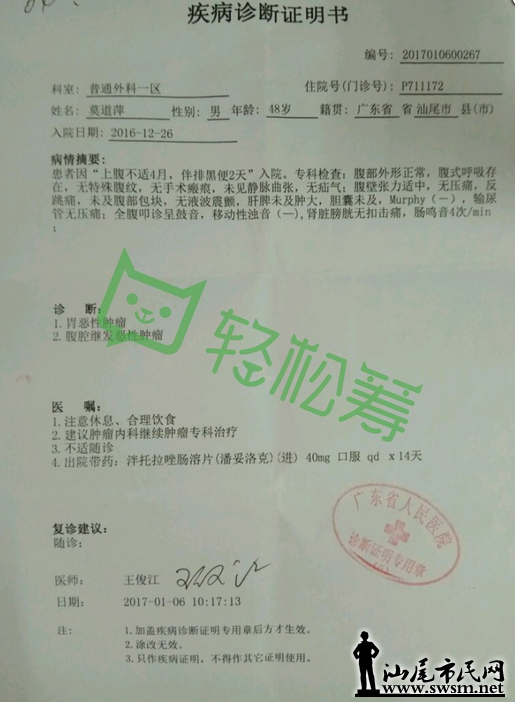 疾病诊断证明书
编号: 2017010600267
科室: 普通外科一区 住院号(门诊号): P711172
姓名: 莫道萍 性别: 男 年龄: 48岁 籍贯: 广东省 省 汕尾市 县(市)
入院日期: 2016-12-26
病情摘要:
患者因“上腹不适4月，伴排黑便2天”入院。专科检查：腹部外形正常，腹式呼吸存
在，无特殊腹纹，无手术瘢痕，未见静脉曲张，无疝气；腹壁张力适中，无压痛，反
跳痛，未及腹部包块，无液波震颤，肝脾未及肿大，胆囊未及，Murphy（－），输尿
管无压痛；全腹叩诊呈鼓音，移动性浊音（—），肾脏膀胱无扣击痛，肠鸣音4次/min
；
诊 断:
1. 胃恶性肿瘤
2. 腹腔继发恶性肿瘤
轻松筹
医 嘱:
1. 注意休息、合理饮食
2. 建议肿瘤内科继续肿瘤专科治疗
3. 不适随诊
4. 出院带药：泮托拉唑肠溶片(潘妥洛克)(进) 40mg 口服 qd x14天
广东省人民医院
诊断证明专用章
复诊建议:
随诊:
医师: 王俊江
日期: 2017-01-06 10:17:13
注: 1. 加盖疾病诊断证明专用章后方才生效。
2. 涂改无效。
3. 只作疾病证明，不得作其它证明使用。
汕尾市民网
www.swsm.net